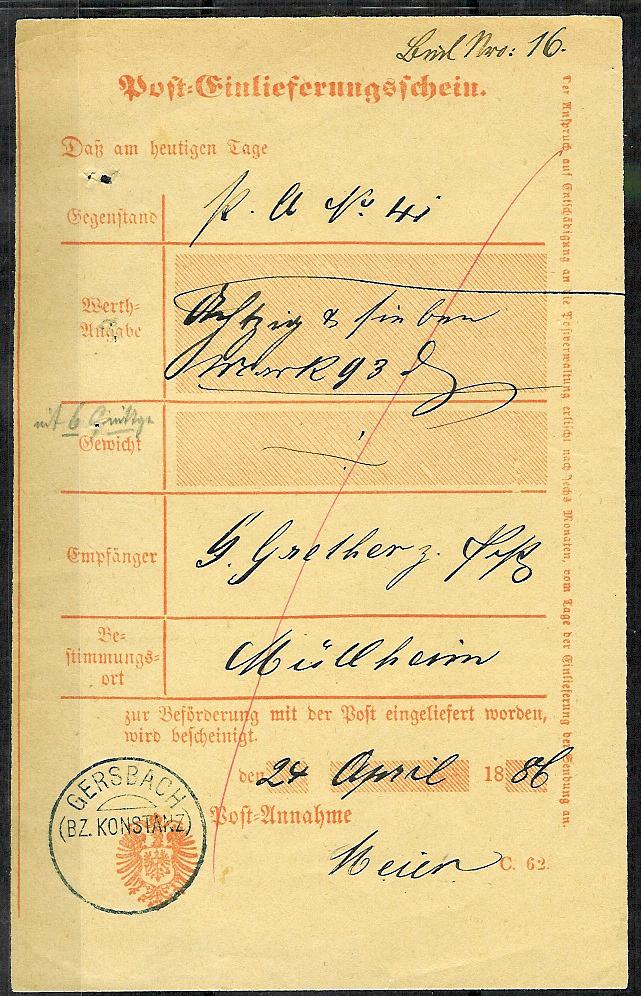 Nro: 16.
Post-Einlieferungsschein.
Daß am heutigen Tage
Gegenstand P. A No. 41
Werth-Angabe Achtzig & sieben
Mark 93 ₰
mit 6
Gewicht
Empfänger G. Grether z.
Bestimmungsort Müllheim
zur Beförderung mit der Post eingeliefert worden,
wird bescheinigt.
den 24 April 1886
Post-Annahme
Meier
C. 62.
GERSBACH
(BZ. KONSTANZ)
Der Anspruch auf Entschädigung an die Postverwaltung erlischt nach sechs Monaten, vom Tage der Einlieferung der Sendung an.